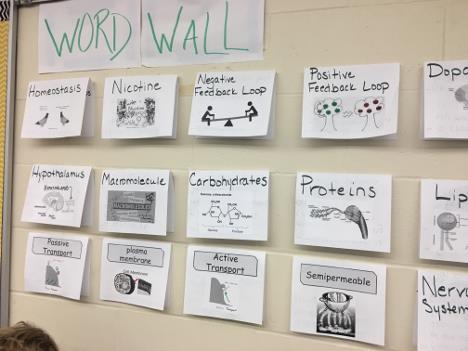 WORD WALL
Homeostasis
Nicotine
Negative
Feedback Loop
Positive
Feedback Loop
Dopa
Hypothalamus
Macromolecule
Carbohydrates
Proteins
Lip
Passive
Transport
plasma
membrane
Active
Transport
Semipermeable
Nervo
System